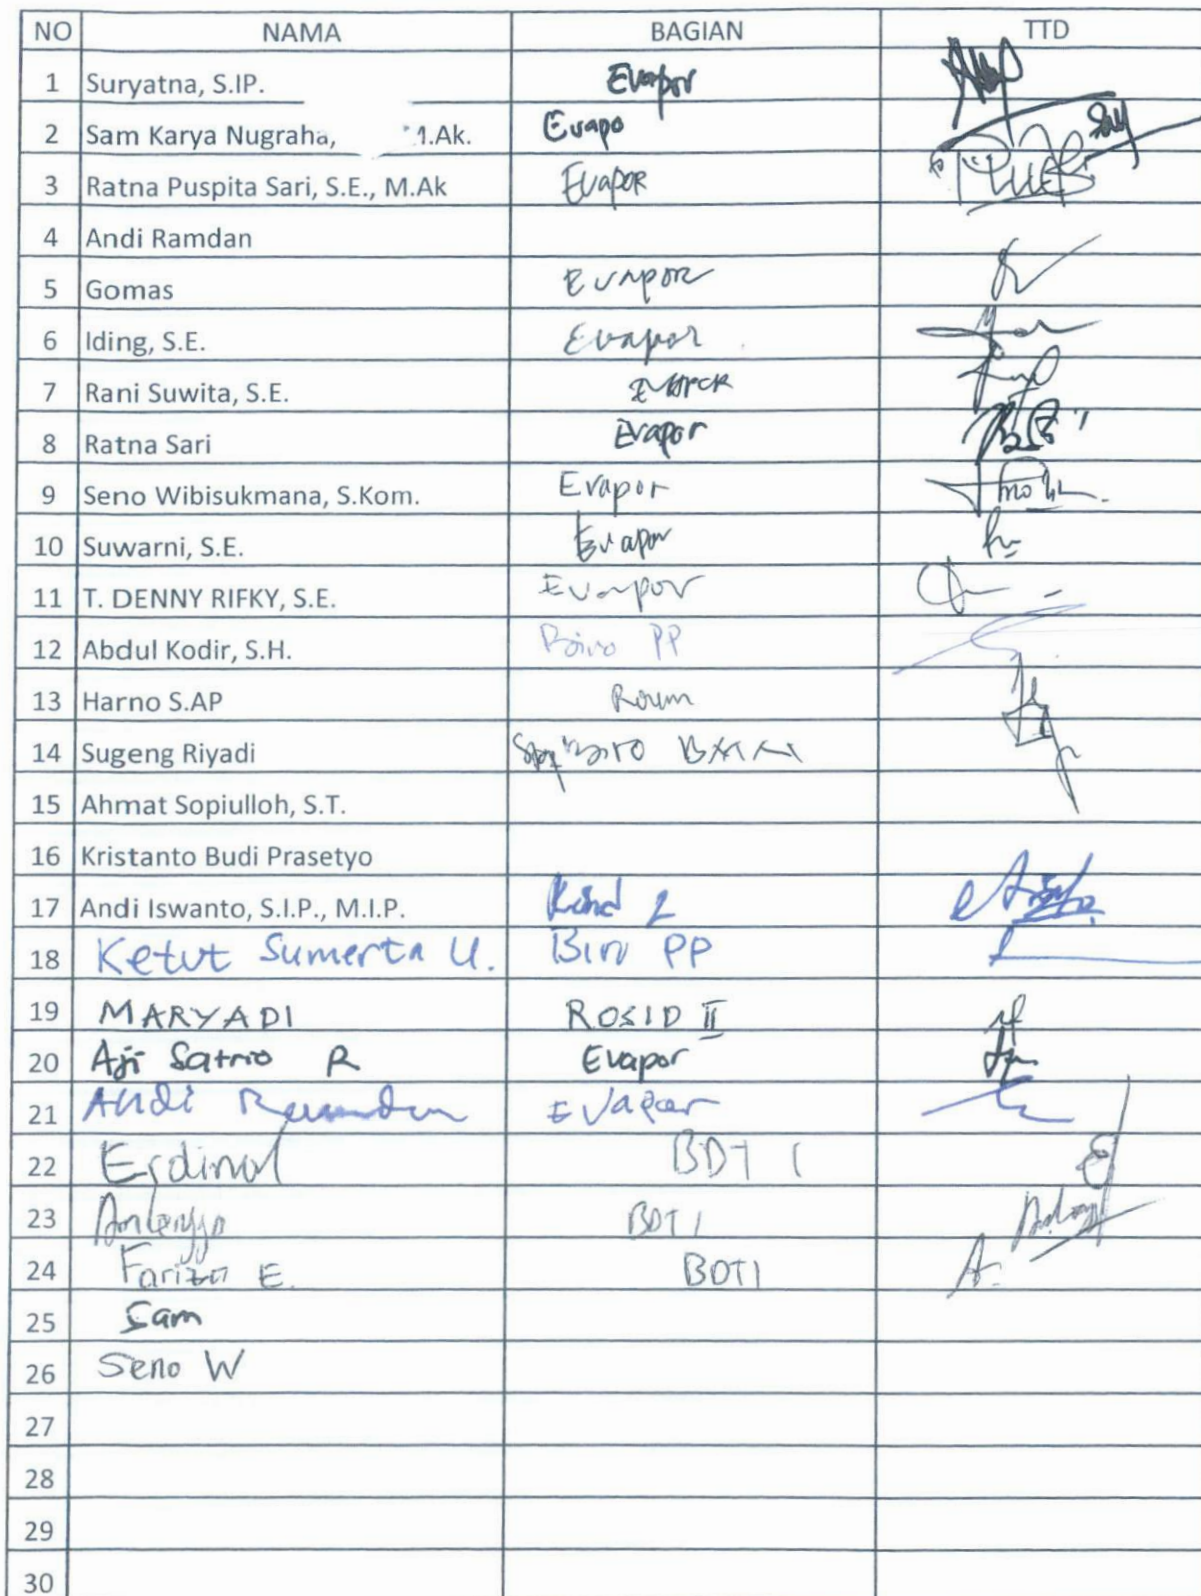 NO NAMA BAGIAN TTD
1 Suryatna, S.IP. Evapor
2 Sam Karya Nugraha, 1.Ak. Evapo
3 Ratna Puspita Sari, S.E., M.Ak Evapor
4 Andi Ramdan
5 Gomas Evapor
6 Iding, S.E. Evapor
7 Rani Suwita, S.E.
8 Ratna Sari Evapor
9 Seno Wibisukmana, S.Kom. Evapor
10 Suwarni, S.E. Evapor
11 T. DENNY RIFKY, S.E. Evapor
12 Abdul Kodir, S.H. Biro PP
13 Harno S.AP Roum
14 Sugeng Riyadi Biro
15 Ahmat Sopiulloh, S.T.
16 Kristanto Budi Prasetyo
17 Andi Iswanto, S.I.P., M.I.P.
18 Ketut Sumerta U. Biro PP
19 MARYADI ROSID II
20 Aji Satrio R Evapor
21 Andi Ramdan Evapor
22 Erdinal BDTI
23 BDTI
24 Fariza E. BDTI
25 Sam
26 Seno W
27
28
29
30